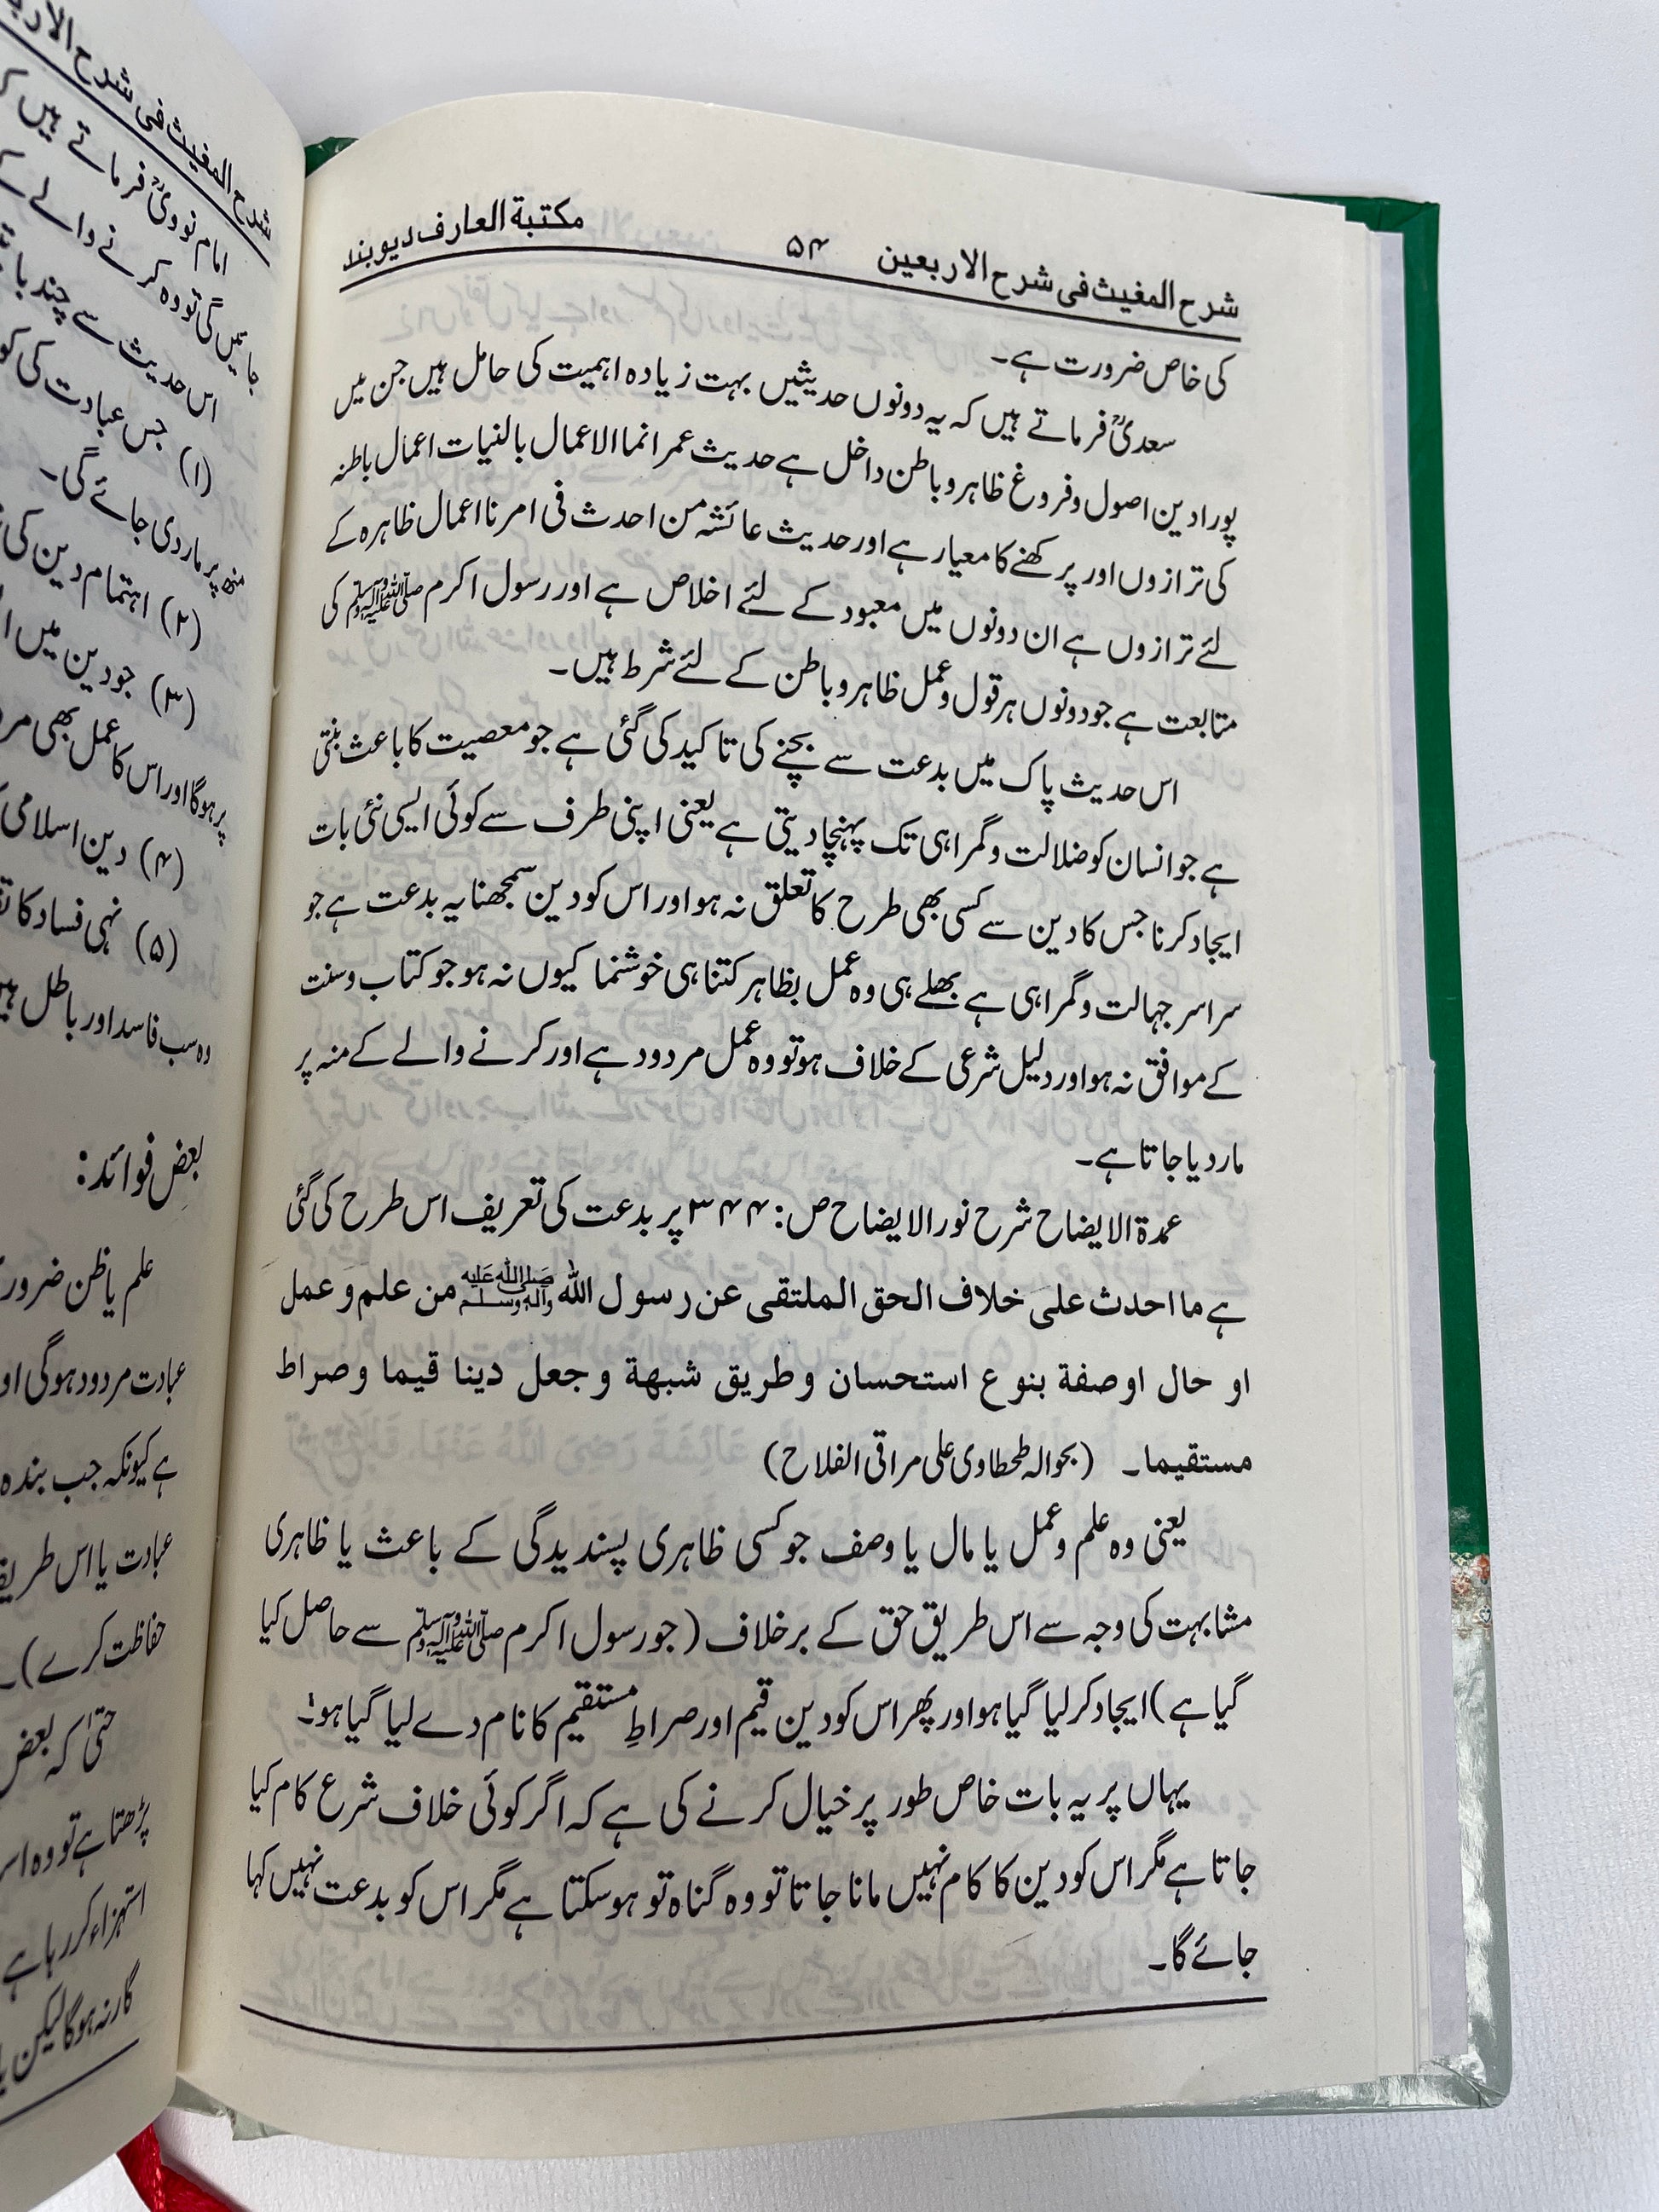 شرح المغیث فی شرح الاربعین ۵۴ مکتبة العارف دیوبند
کی خاص ضرورت ہے۔
سعدیؒ فرماتے ہیں کہ یہ دونوں حدیثیں بہت زیادہ اہمیت کی حامل ہیں جن میں
پورا دین اصول وفروغ ظاہر وباطن داخل ہے حدیث عمر انما الاعمال بالنیات اعمال باطنہ
کی ترازوں اور پرکھنے کا معیار ہے اور حدیث عائشہ من احدث فی امرنا اعمال ظاہرہ کے
لئے ترازوں ہے ان دونوں میں معبود کے لئے اخلاص ہے اور رسول اکرم ﷺ کی
متابعت ہے جو دونوں ہر قول وعمل ظاہر وباطن کے لئے شرط ہیں۔
اس حدیث پاک میں بدعت سے بچنے کی تاکید کی گئی ہے جو معصیت کا باعث بنتی
ہے جو انسان کو ضلالت وگمراہی تک پہنچا دیتی ہے یعنی اپنی طرف سے کوئی ایسی نئی بات
ایجاد کرنا جس کا دین سے کسی بھی طرح کا تعلق نہ ہو اور اس کو دین سمجھنا یہ بدعت ہے جو
سراسر جہالت وگمراہی ہے بھلے ہی وہ عمل بظاہر کتنا ہی خوشنما کیوں نہ ہو جو کتاب وسنت
کے موافق نہ ہو اور دلیل شرعی کے خلاف ہو تو وہ عمل مردود ہے اور کرنے والے کے منہ پر
مار دیا جاتا ہے۔
عمدۃ الایضاح شرح نور الایضاح ص: ۳۴۴ پر بدعت کی تعریف اس طرح کی گئی
ہے ما احدث علی خلاف الحق الملتقی عن رسول اللہ ﷺ من علم و عمل
او حال او صفة بنوع استحسان وطریق شبهة وجعل دینا قیما وصراط
مستقیما۔ (بحوالہ طحطاوی علی مراقی الفلاح)
یعنی وہ علم وعمل یا مال یا وصف جو کسی ظاہری پسندیدگی کے باعث یا ظاہری
مشابہت کی وجہ سے اس طریق حق کے برخلاف (جو رسول اکرم ﷺ سے حاصل کیا
گیا ہے) ایجاد کرلیا گیا ہو اور پھر اس کو دین قیم اور صراطِ مستقیم کا نام دے لیا گیا ہو۔
یہاں پر یہ بات خاص طور پر خیال کرنے کی ہے کہ اگر کوئی خلاف شرع کام کیا
جاتا ہے مگر اس کو دین کا کام نہیں مانا جاتا تو وہ گناہ تو ہوسکتا ہے مگر اس کو بدعت نہیں کہا
جائے گا۔
شرح المغیث فی شرح
امام نوویؒ فرماتے ہیں
جائیں گی تو وہ کرنے والے
اس حدیث سے چند
(۱) جس عبادت کی
منھ پر ماردی جائے گی۔
(۲) اہتمام دین کی
(۳) جو دین میں
پر ہوگا اور اس کا عمل بھی
(۴) دین اسلامی
(۵) نہی فساد کا
وہ سب فاسد اور باطل
بعض فوائد:
علم یا ظن
عبادت مردود ہوگی
ہے کیونکہ جب بندہ
عبادت یا اس
حفاظت کرے)۔
حتیٰ کہ بعض
پڑھتا ہے تو وہ
استہزاء کر رہا ہے
گار نہ ہوگا لیکن